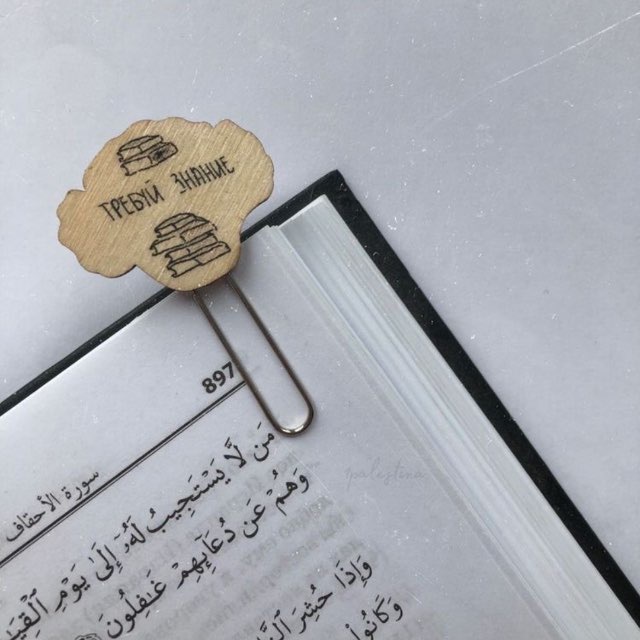 ТРЕБУЙ ЗНАНИЕ
897
سورة الأحقاف
مَن لَّا يَسْتَجِيبُ لَهُۥٓ إِلَىٰ يَوْمِ
وَهُمْ عَن دُعَآئِهِمْ غَٰفِلُونَ
وَإِذَا حُشِرَ
وَكَانُوا۟
palestina